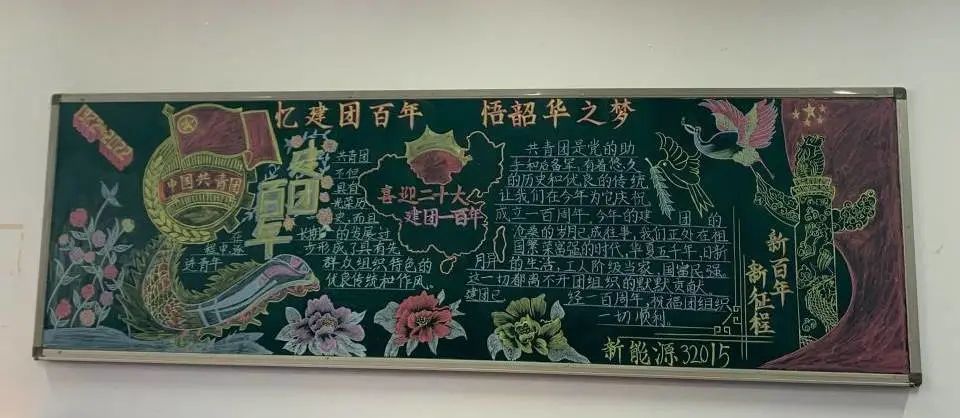 忆建团百年 悟韶华之梦
中国共青团
建团
百年
共青团
不但
具有
光荣历
史,而且
长期的发展过
步形成了具有先
进青年群众组织特色的
优良传统和作风。
喜迎二十大
建团一百年
共青团是党的助
手和后备军,有着悠久
的历史和优良的传统
让我们在今年为它庆祝
成立一百周年。今年的建团的
沧桑的岁月已成往事,我们正处在祖
国繁荣富强的时代,华夏五千年,日新
月异的生活,工人阶级当家,国富民强
这一切都离不开团组织的默默贡献
建团已经一百周年,祝福团组织
一切顺利。
新百年
新征程
新能源32015